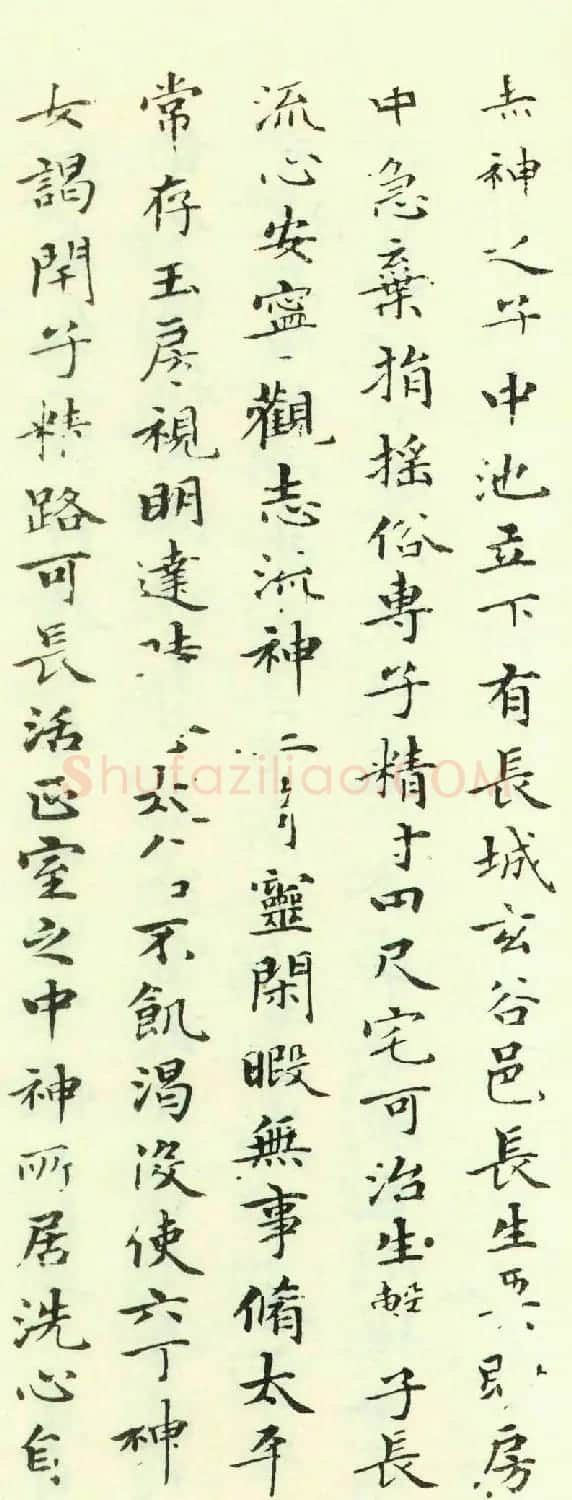 赤神之子中池立下有長城玄谷邑長生房
中急棄捐搖俗專子精寸田尺宅可治生子長
流心安寧觀志流神靈閑暇無事脩太平
常存玉房視明達太不飢渴役使六丁神
女謁閇子精路可長活正室之中神所居洗心自
Shufaziliao.COM